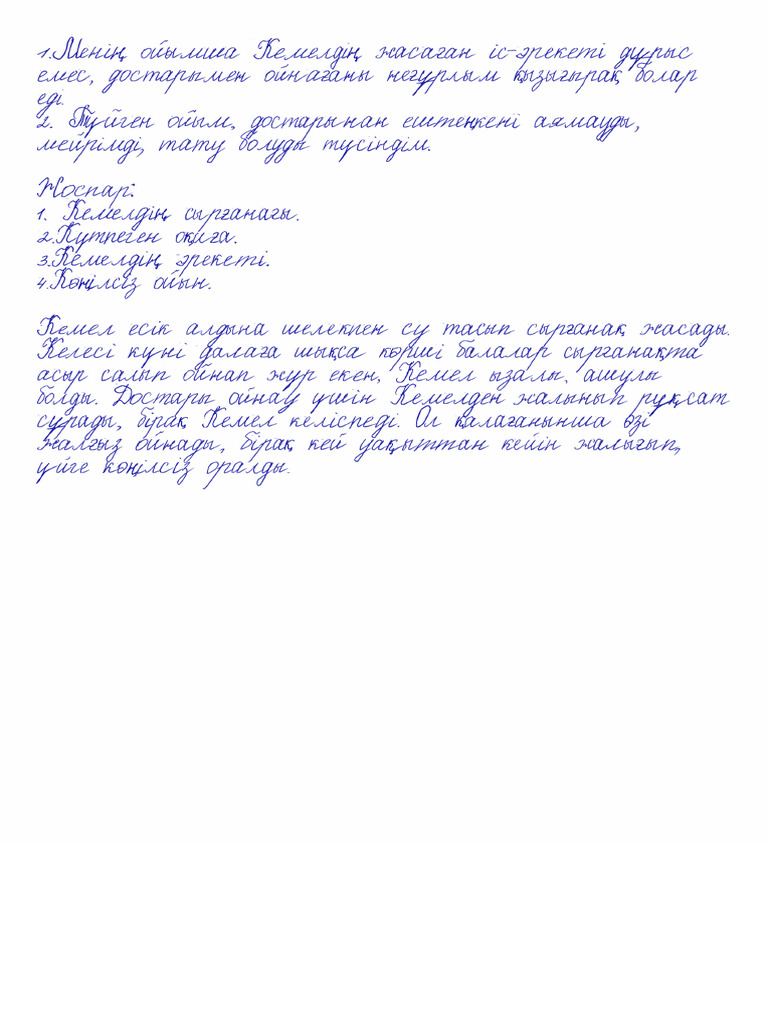 1.Менің ойымша Кемелдің жасаған іс-әрекеті дұрыс
емес, достарымен ойнағаны неғұрлым қызығырақ болар
еді.
2. Түйген ойым, достарынан ештеңкені аямауды,
мейрімді, тату болуды түсіндім.
Жоспар:
1. Кемелдің сырғанағы.
2.Күтпеген оқиға.
3.Кемелдің әрекеті.
4.Көңілсіз ойын.
Кемел есік алдына шелекпен су тасып сырғанақ жасады.
Келесі күні далаға шықса көрші балалар сырғанақта
асыр салып ойнап жүр екен, Кемел ызалы, ашулы
болды. Достары ойнау үшін Кемелден жалынып рұқсат
сұрады, бірақ Кемел келіспеді. Ол қалағанынша өзі
жалғыз ойнады, бірақ кей уақыттан кейін жалығып,
үйге көңілсіз оралды.